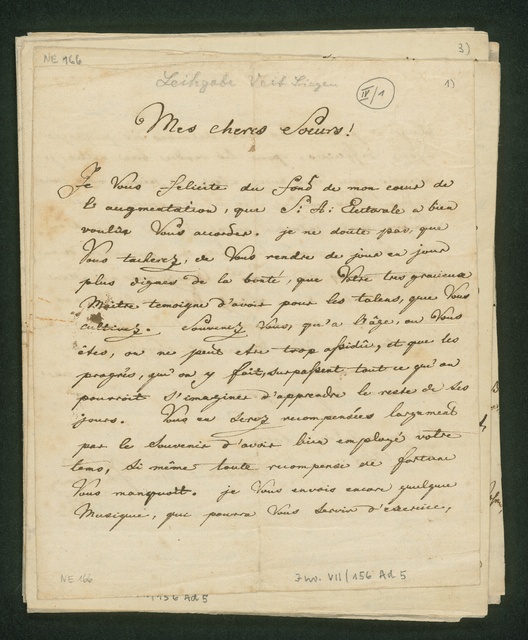 NE 166
3)
Leihgabe
IV/1
1)
Mes cheres Soeurs!
Je Vous felicite du fond de mon coeur de
l'augmentation, que S: A: Electorale a bien
voulu Vous accorder. je ne doute pas, que
Vous tacherez, de Vous rendre de jour en jour
plus dignes de la bonté, que Votre tres gracieux
Maitre temoigne d'avoir pour les talens, que Vous
cultivez. Souvenez Vous, qu'a l'âge, ou Vous
êtes, on ne peut etre trop assidu, et que les
progrés, qu'on y fait, surpassent tout ce qu'on
pourroit s'imaginer d'apprendre le reste de ses
jours. Vous en serez recompensées largament
par le souvenir d'avoir bien employé votre
tems, si même toute recompense de fortune
Vous manquoit. je Vous envois encore quelque
Musique, que pourra Vous servir d'exercice,
NE 166
Zwv. VII/156 Ad 5
156 Ad 5